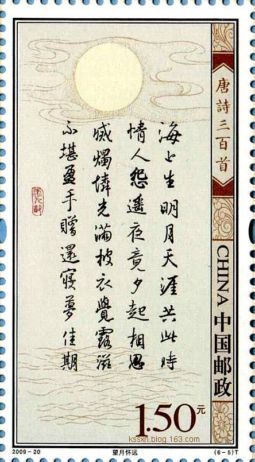 唐詩三百首
海上生明月天涯共此時
情人怨遥夜竟夕起相思
滅燭憐光滿披衣覺露滋
不堪盈手贈還寢夢佳期
CHINA 中国邮政
1.50元
kssxln.blog.163.com
2009-20
望月怀远
(6-5)T